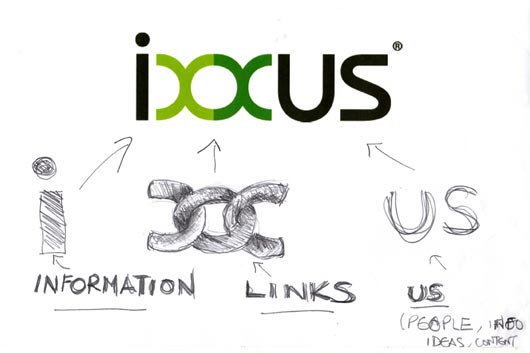 ixxus®
i us
INFORMATION LINKS US
(PEOPLE, INFO
IDEAS, CONTENT